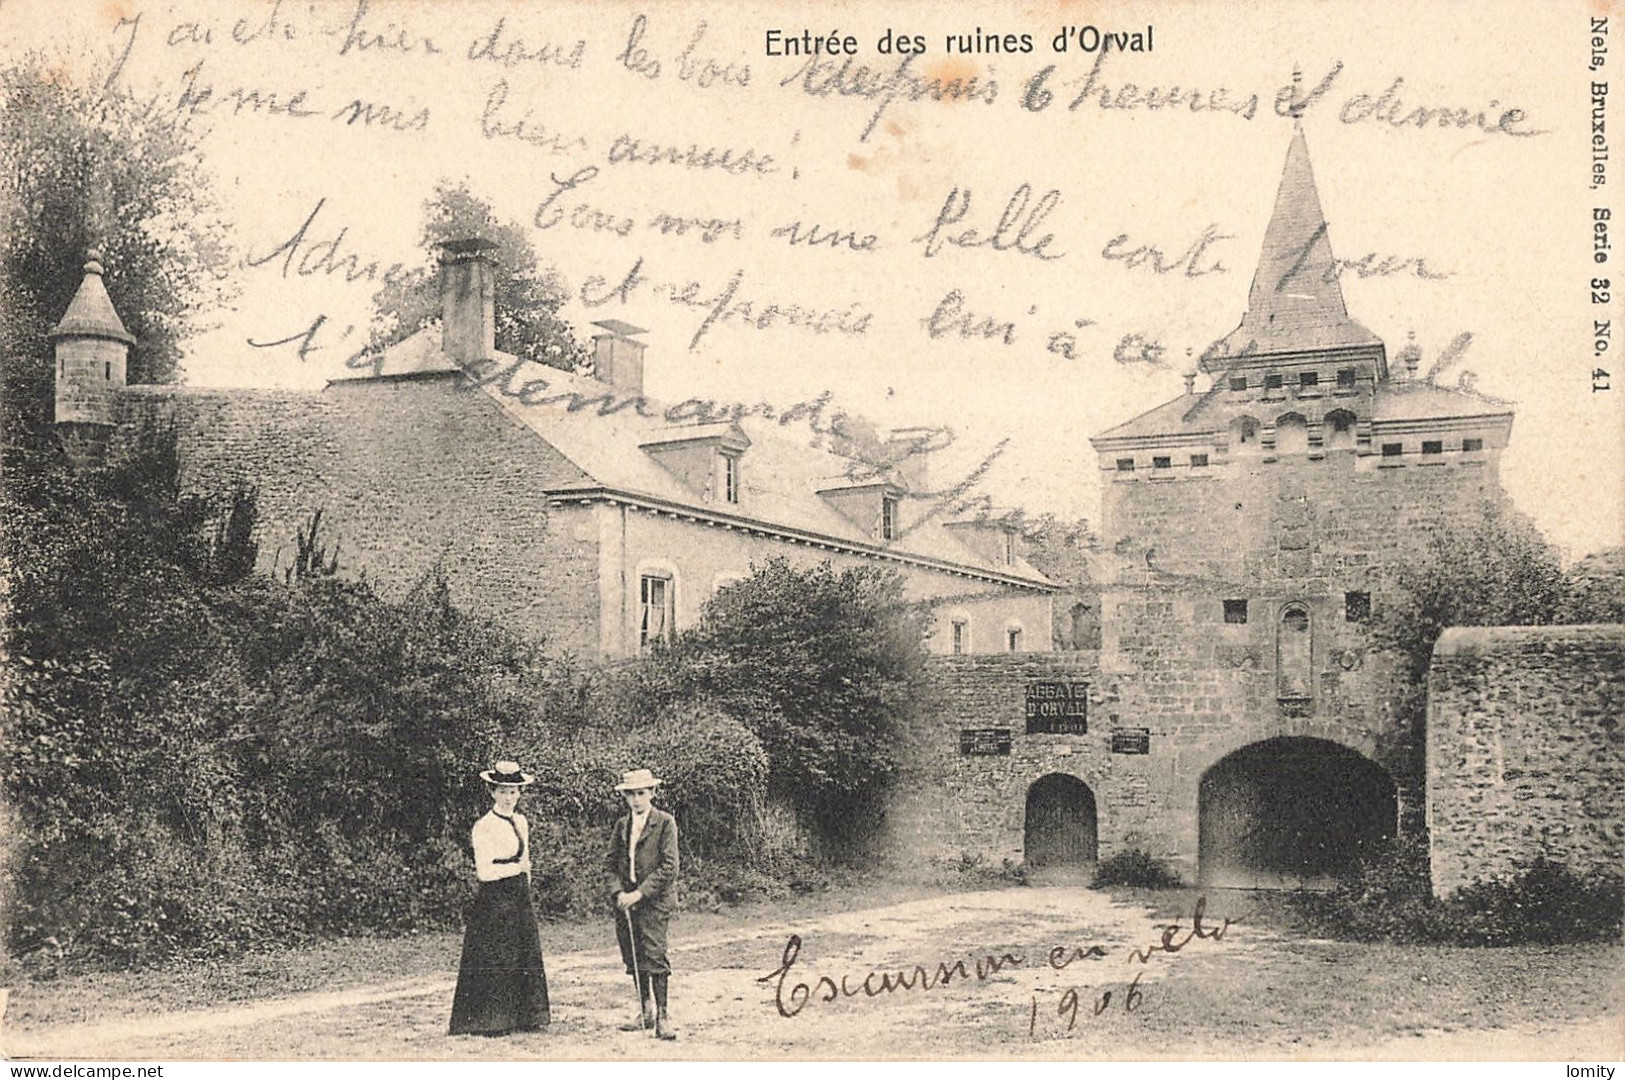 Entrée des ruines d'Orval
Nels, Bruxelles, Serie 32 No. 41
J'ai été hier dans les bois depuis 6 heures et demie
Je me mis bien amusé!
Tous moi une belle carte pour
Adrien et reponds lui à ce
t'a demandé
ABBAYE
D'ORVAL
Excursion en vélo
1906
delcampe.net
lomity